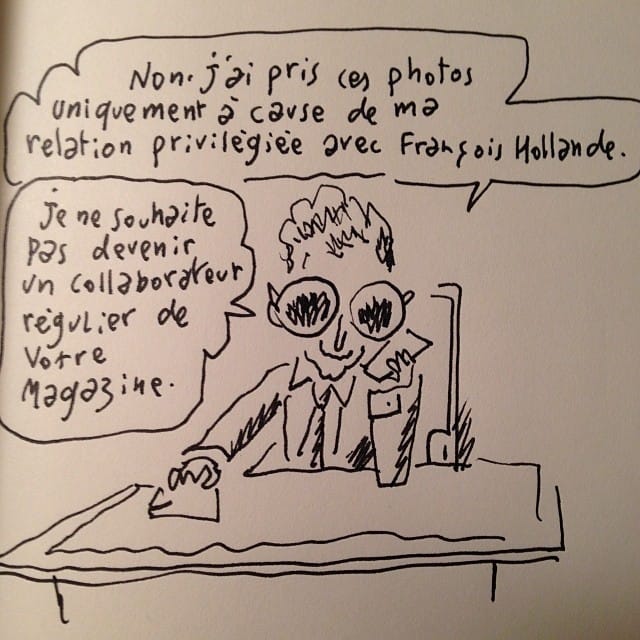 Non. j'ai pris ces photos
uniquement à cause de ma
relation privilégiée avec François Hollande.
je ne souhaite
pas devenir
un collaborateur
régulier de
votre
magazine.